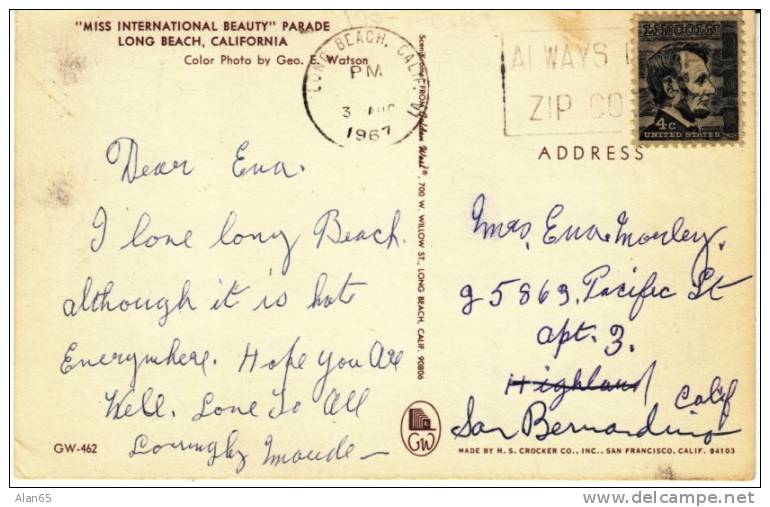 "MISS INTERNATIONAL BEAUTY" PARADE
LONG BEACH, CALIFORNIA
Color Photo by Geo. E. Watson
LONG BEACH, CALIF.
PM
3 AUG
1967
ALWAYS
ZIP CO
LINCOLN
4c
UNITED STATES
Dear Eva.
I love long Beach.
although it is hot
Everywhere. Hope You Are
Well. Love To All
Lovingly Maude
GW-462
FROM Golden West®, 700 W. WILLOW ST., LONG BEACH, CALIF. 90806
ADDRESS
Mrs. Eva Morley.
25869. Pacific St
apt. 3.
Highland,
Calif
San Bernardino
GW
MADE BY H. S. CROCKER CO., INC., SAN FRANCISCO, CALIF. 94103
Alan65
www.delcampe.net